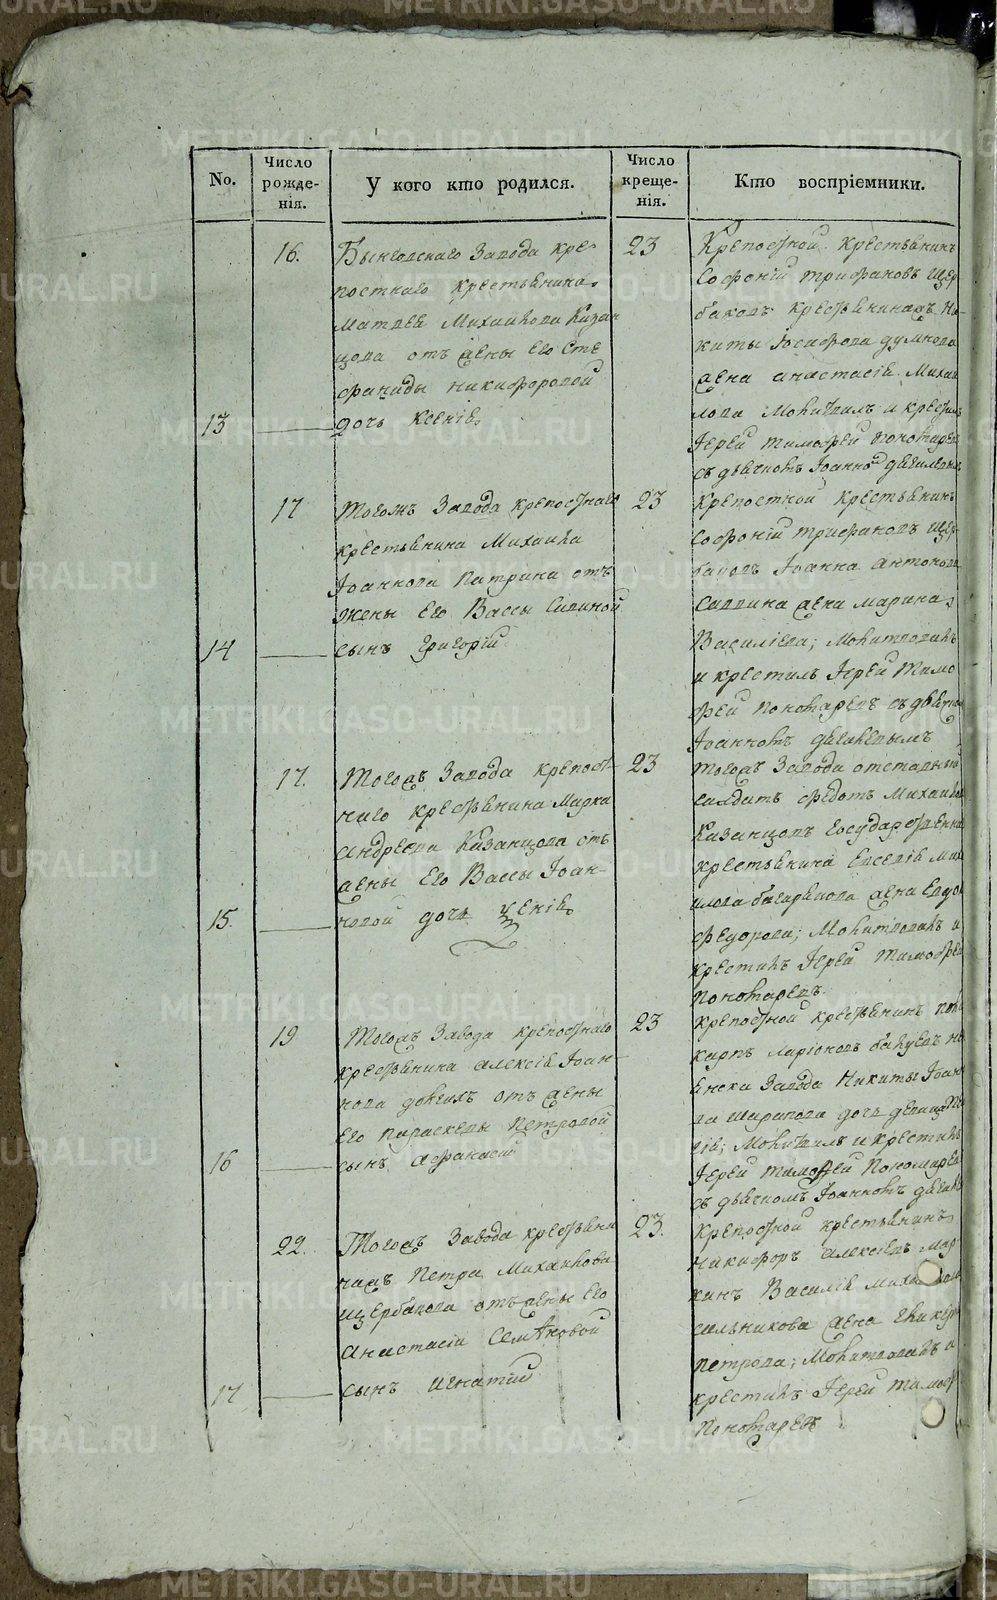 No.
Число рожде-
нія.
У кого кто родился.
Число креще-
нія.
Кто воспріемники.
16.
Быньговскаго Завода кре-
постнаго крестьянина
Матвея Михаилова Казан
цова отъ жены Его Сте
фаниды никифоровой
13
дочь Ксенія
23
Крепостной крестьянинъ
Софоній трифановъ щер
баковъ крестьянина Ни-
киты Іосифова
жена анастасія Михаи
лова Молитвилъ и крестилъ
Іерей тимофей пономаревъ
съ дьячкомъ Іоанномъ
17
Тогожъ Завода крепостнаго
крестьянина Михаила
Іоаннова Патрина отъ
жены Его Вассы Савиной
14
сынъ григорій
23
Крепостной крестьянинъ
Софоній трифановъ щер
баковъ Іоанна антонова
Саввина жена марина
Василіева; Молитвовалъ
и крестилъ Іерей Тимо
фей пономаревъ съ дьячкомъ
Іоанномъ
17.
Тогожъ Завода крепост-
наго крестьянина Марка
андреева Казанцова отъ
жены Его Вассы Іоан-
15.
новой дочь
23
тогожъ Завода отставный
салдатъ федотъ Михаилов
Казанцовъ государственна
крестьянина Евсевія Мих
илова жена Евдо
федорова; Молитвовалъ и
крестилъ Іерей тимофей
Пономаревъ
19
Тогожъ Завода крепостнаго
крестьянина алексія Іоан-
нова отъ жены
Его параскевы Петровой
16
сынъ афанасій
23
крепостной крестьянинъ пол
карпъ Ларіоновъ
Завода Никиты Іоан
ва шарапова дочь девица
Молитвилъ и крестилъ
Іерей тимофей Пономарев
съ дьячкомъ Іоанномъ
22.
Тогожъ Завода крестьяни
на Петра Михаилова
щербакова отъ жены Его
анастасіи Семеновой
17
сынъ игнатій
23.
Крепостной крестьянинъ
никифоръ алексіевъ мар
кинъ Василія
сильникова жена
петрова; Молитвовалъ и
крестилъ Іерей тимоф
Пономаревъ
METRIKI.GASO-URAL.RU